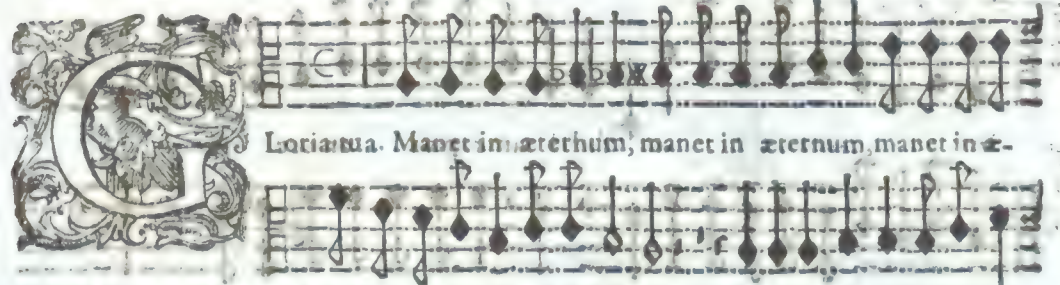 GLoria tua. Manet in æternum, manet in æternum manet in æ-